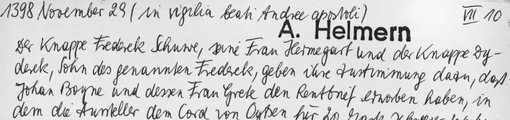 1398 November 29 (in vigilia beati Andree apostoli) VII 10
A. Helmern
Der Knappe Frederek Schuwe, seine Frau Hermegart und der Knappe Dy-
derek, Sohn des genannten Frederek, geben ihre Zustimmung dazu, daß
Johan Boyne und dessen Frau Grete den Rentbrief erworben haben, in
dem die Aussteller dem Cord von Outen für 20 Mark